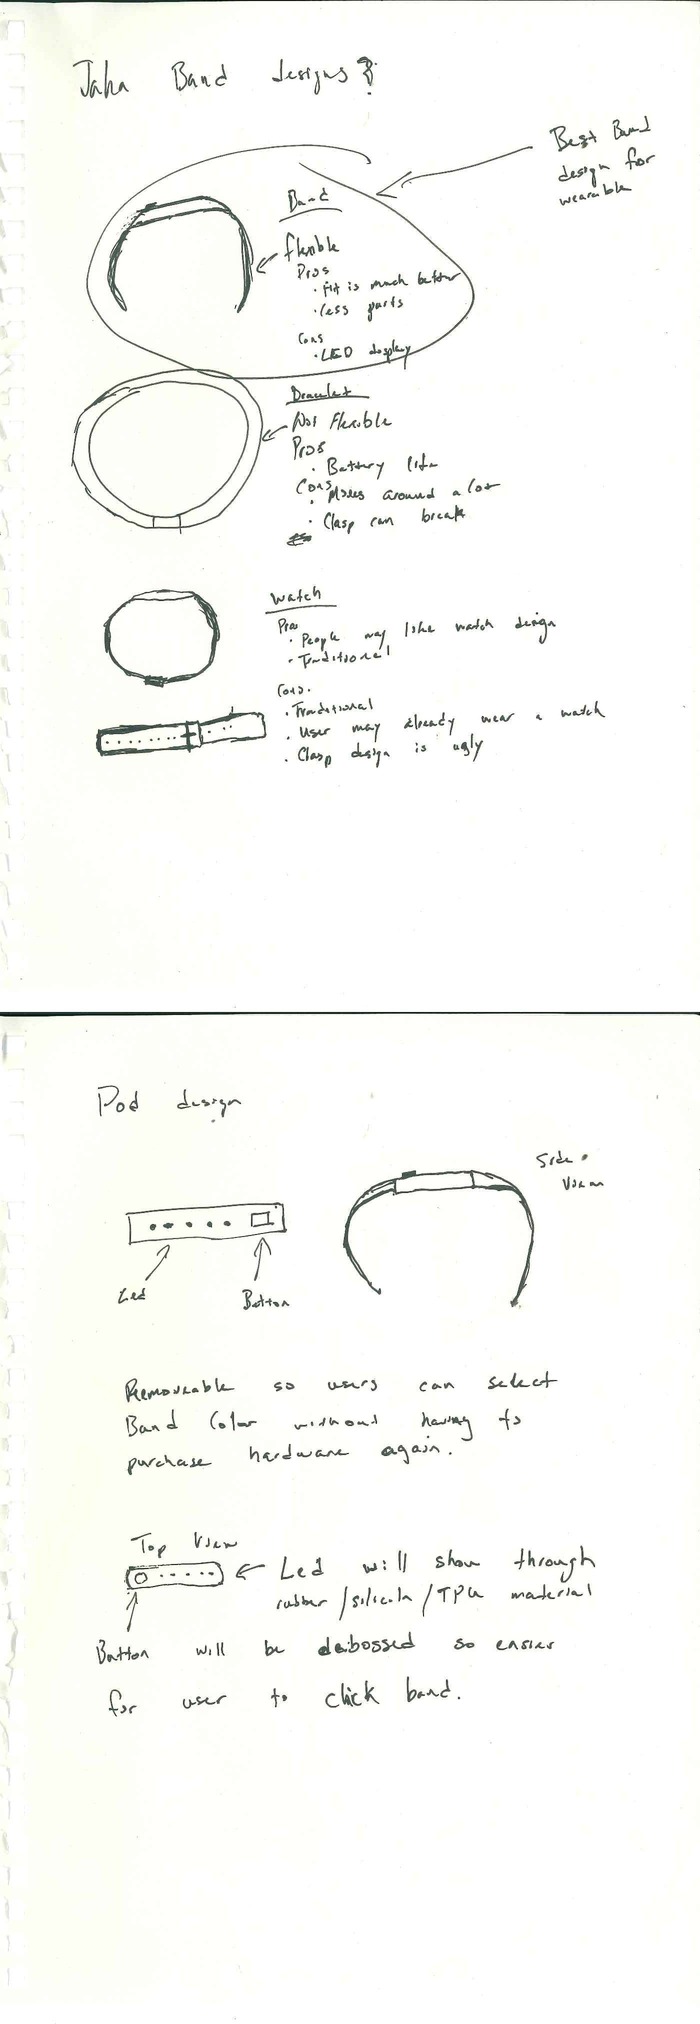 Jaha Band designs?
Best Band
design for
wearable
Band
flexible
Pros
· Fit is much better
· Less parts
Cons
· LED display
Bracelet
Not Flexible
Pros
· Battery life
Cons
· Moves around a lot
· Clasp can break
Watch
Pros
· People may like watch design
· Traditional
Cons.
· Traditional
· User may already wear a watch
· Clasp design is ugly
Pod design
Side
View
Led
Button
Removeable so users can select
Band Color without having to
purchase hardware again.
Top View
Led will show through
rubber/silicoln/TPU material
Button will be deibossed so easier
for user to click band.